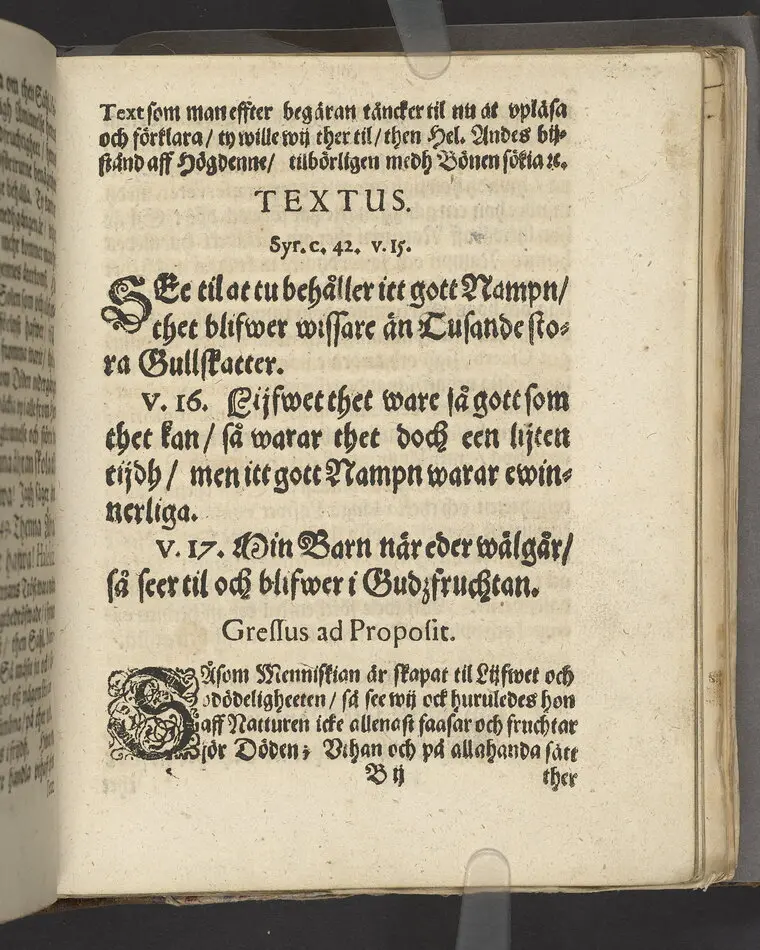 Text som man effter begäran täncker til nu at vpläsa
och förklara / ty wille wij ther til / then Hel. Andes bij-
stånd aff Högdenne / tilbörligen medh Bönen sökia ꝛc.
TEXTUS.
Syr. c. 42. v. 15.
SEe til at tu behåller itt gott Nampn /
thet blifwer wissare än Tusande sto-
ra Gullskatter.
V. 16. Lijfwet thet ware så gott som
thet kan / så warar thet doch een lijten
tijdh / men itt gott Nampn warar ewin-
nerliga.
V. 17. Min Barn när eder wälgår /
så seer til och blifwer i Gudzfruchtan.
Gressus ad Proposit.
SÅsom Menniskian är skapat til Lijfwet och
odödeligheeten / så see wij ock huruledes hon
aff Natturen icke allenast faasar och fruchtar
för Döden; Vthan och på allahanda sätt
B ij
ther